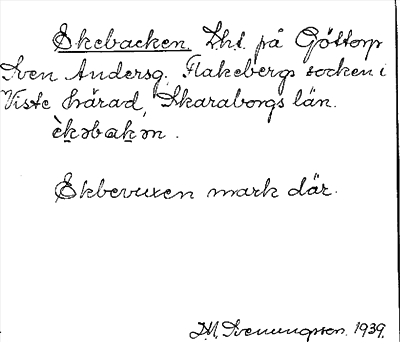 Ekebacken. Lht. på Göttorp
Sven Andersg. Flakebergs socken i
Viste härad, Skaraborgs län.
èk̬əbak̬ən.
Ekbevuxen mark där.
1939.